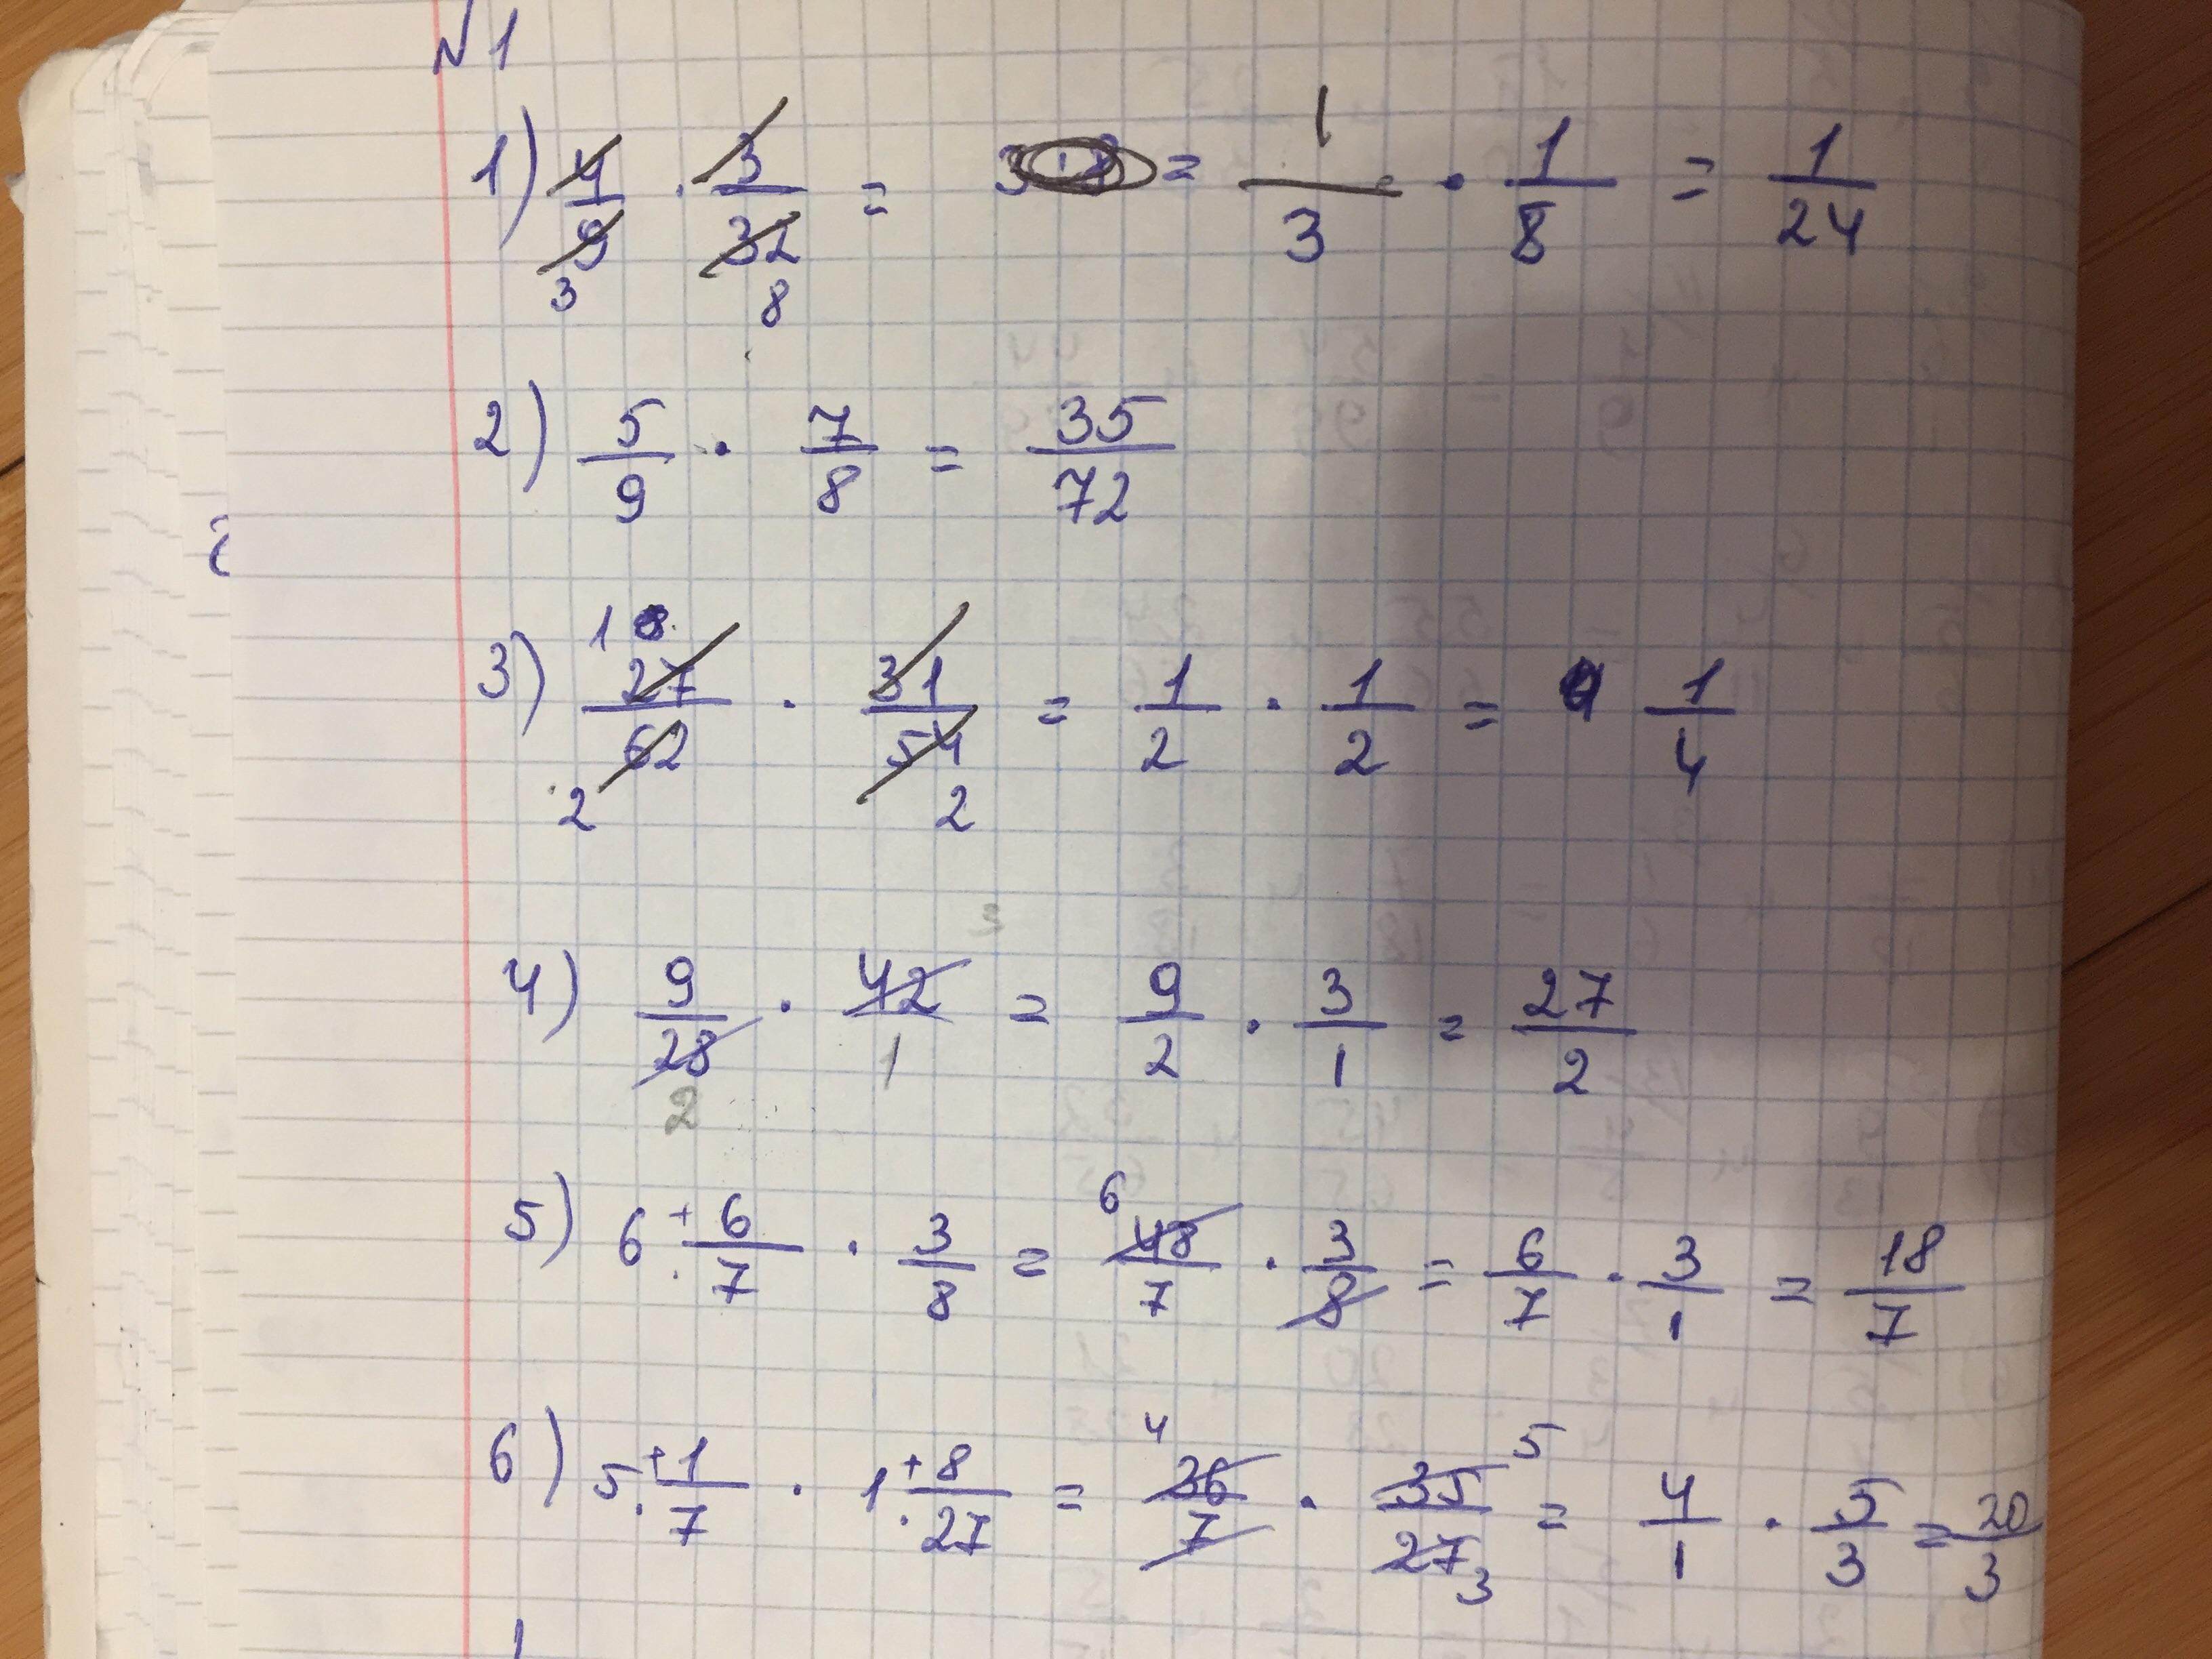 N1
1) 4/9 · 3/32 = 3 = 1/3 · 1/8 = 1/24
3 8
2) 5/9 · 7/8 = 35/72
1
3) 27/62 · 31/54 = 1/2 · 1/2 = 1/4
2 2
3
4) 9/28 · 42/1 = 9/2 · 3/1 = 27/2
2
6
5) 6 + 6/7 · 3/8 = 48/7 · 3/8 = 6/7 · 3/1 = 18/7
4 5
6) 5 + 1/7 · 1 + 8/27 = 36/7 · 35/27 = 4/1 · 5/3 = 20/3
3